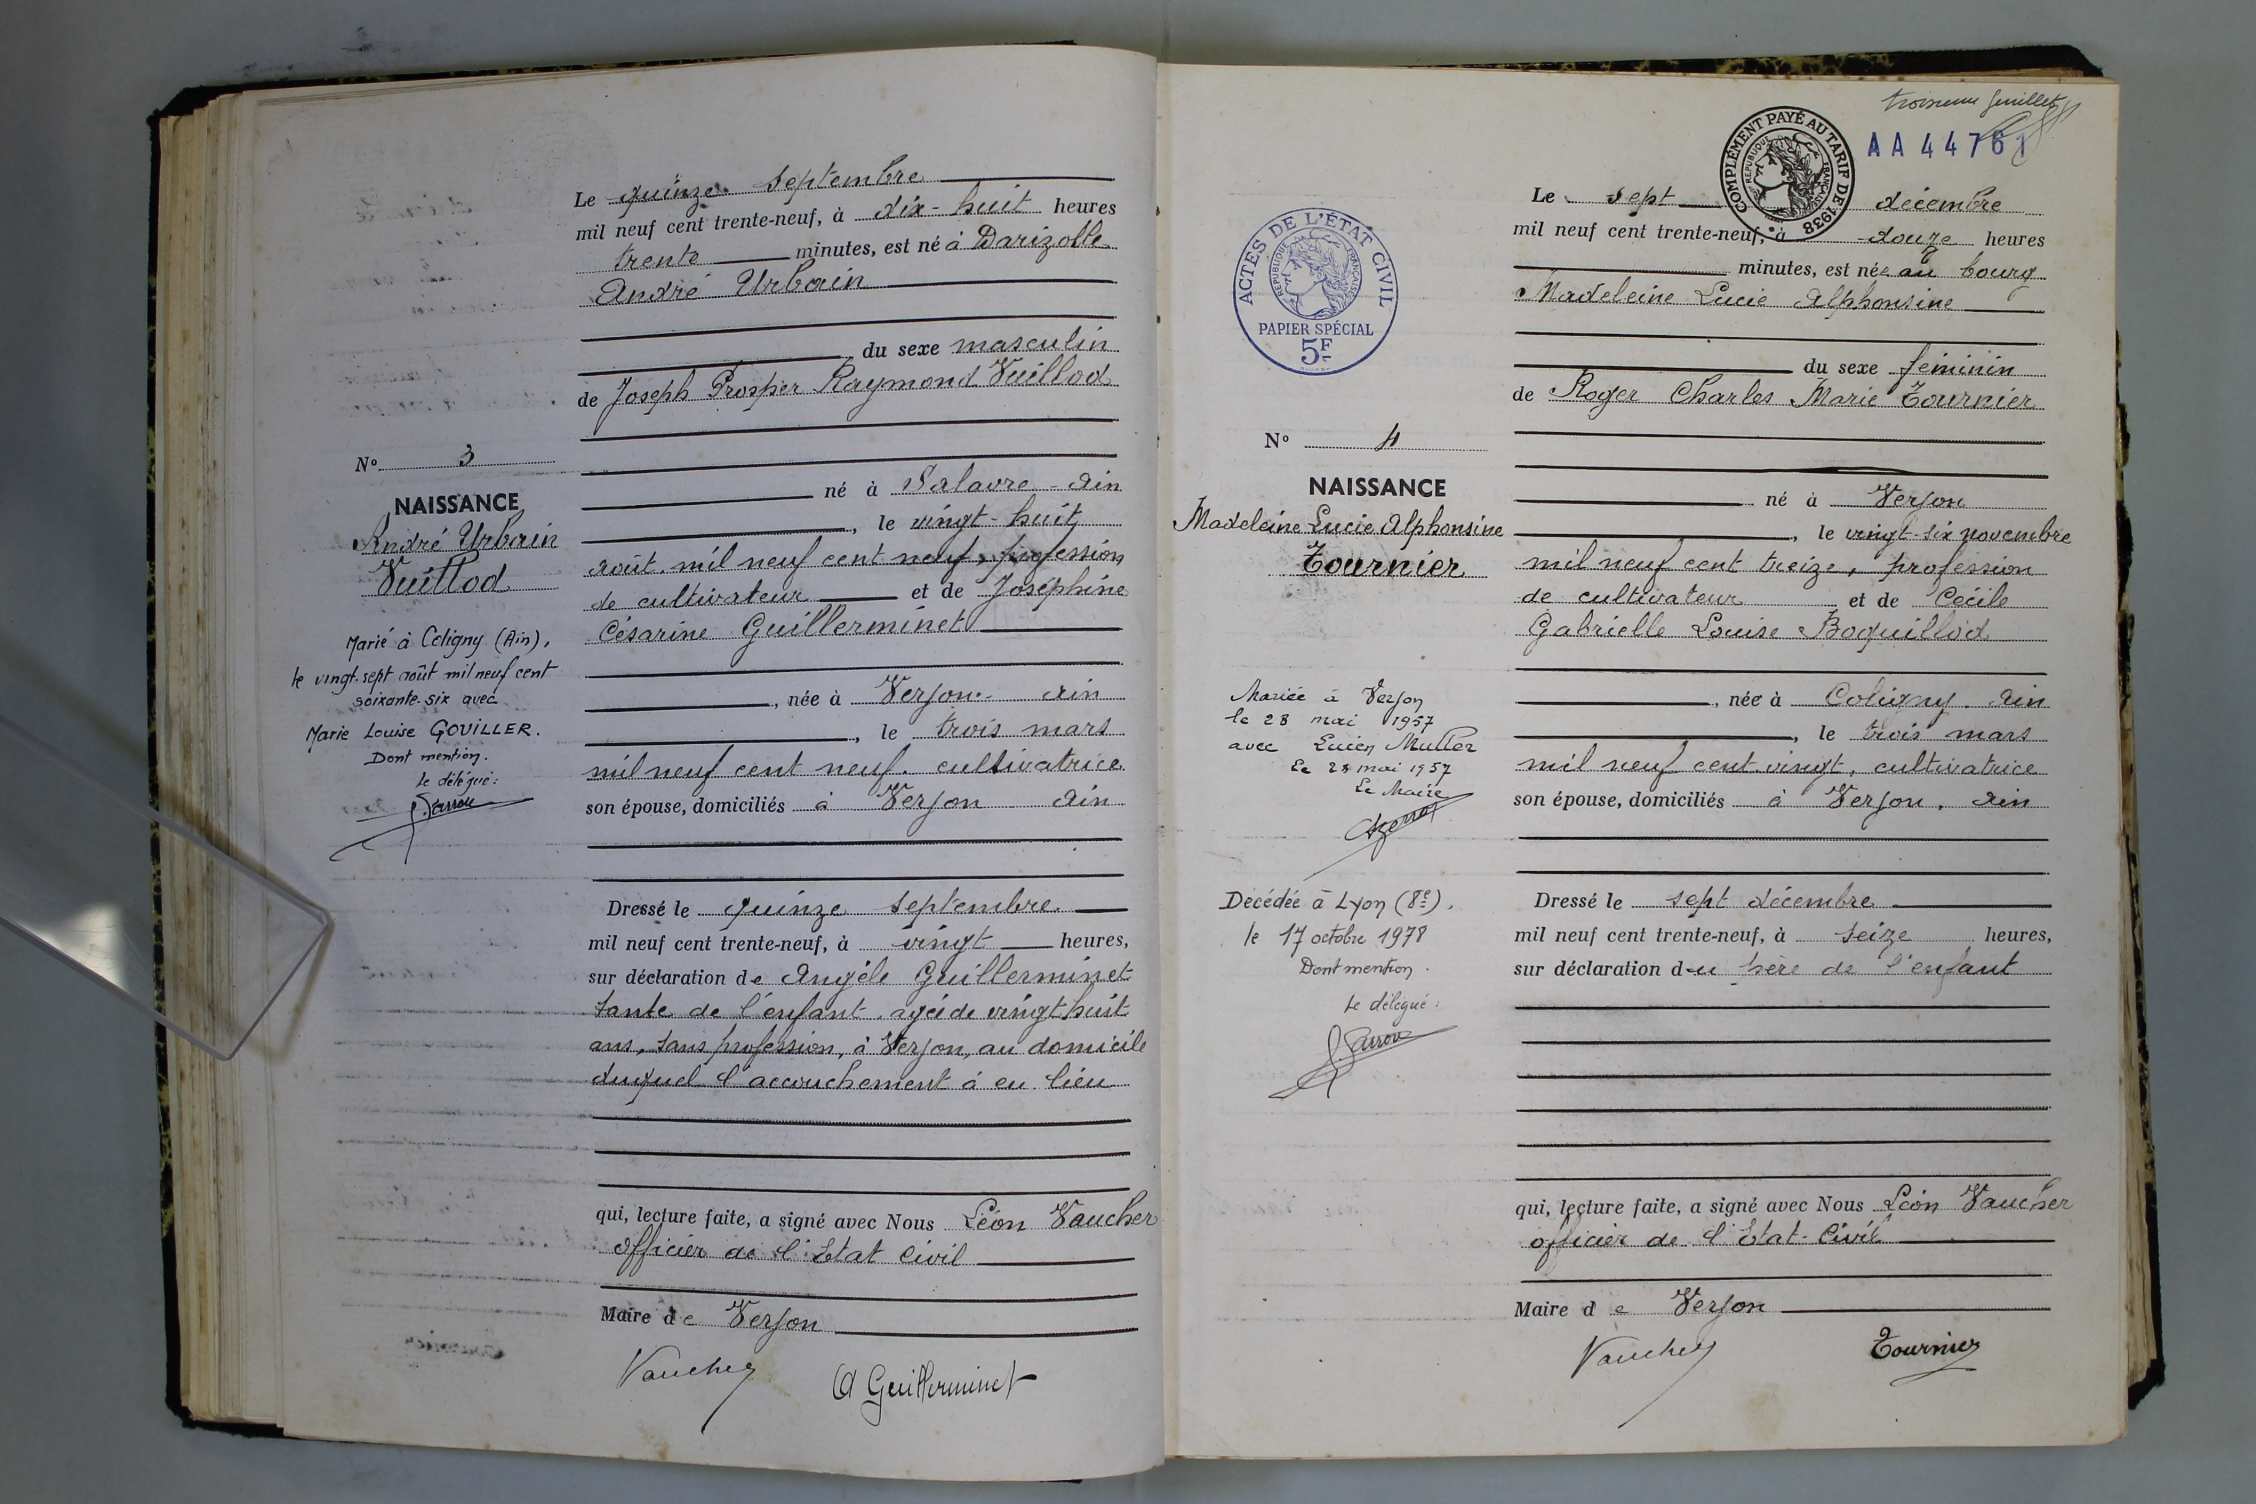 Le quinze septembre
mil neuf cent trente-neuf, à dix-huit heures
trente minutes, est né à Darizolle
André Urbain
du sexe masculin
de Joseph Prosper Raymond Vuillod
né à Salavre - Ain
, le vingt-huit
août mil neuf cent neuf, profession
de cultivateur et de Joséphine
Césarine Guillerminet
, née à Verjon - Ain
, le trois mars
mil neuf cent neuf. cultivatrice
son épouse, domiciliés à Verjon Ain
Dressé le quinze septembre
mil neuf cent trente-neuf, à vingt heures,
sur déclaration de Angèle Guillerminet
tante de l'enfant âgée de vingt huit
ans, sans profession, à Verjon, au domicile
duquel l'accouchement à eu lieu
qui, lecture faite, a signé avec Nous Léon Vaucher
officier de l'Etat Civil
Maire de Verjon
Vaucher
A Guillerminet
N° 3
NAISSANCE
André Urbain
Vuillod
Marié à Coligny (Ain),
le vingt-sept août mil neuf cent
soixante-six avec
Marie Louise GOUILLER.
Dont mention.
Le délégué:
troisième feuillet
AA 44761
COMPLÉMENT PAYÉ AU TARIF DE 1938
RÉPUBLIQUE FRANÇAISE
ACTES DE L'ÉTAT CIVIL
RÉPUBLIQUE FRANÇAISE
PAPIER SPÉCIAL
5F
Le sept décembre
mil neuf cent trente-neuf, à douze heures
minutes, est née au bourg
Madeleine Lucie Alphonsine
du sexe féminin
de Roger Charles Marie Tournier
né à Verjon
, le vingt-six novembre
mil neuf cent treize, profession
de cultivateur et de Cécile
Gabrielle Louise Boquillod
, née à Coligny. Ain
, le trois mars
mil neuf cent vingt, cultivatrice
son épouse, domiciliés à Verjon, Ain
Dressé le sept décembre
mil neuf cent trente-neuf, à seize heures,
sur déclaration du père de l'enfant
qui, lecture faite, a signé avec Nous Léon Vaucher
officier de l'Etat-Civil
Maire de Verjon
Vaucher
Tournier
N° 4
NAISSANCE
Madeleine Lucie Alphonsine
Tournier
Mariée à Verjon
le 28 mai 1957
avec Lucien Muller
Le 28 mai 1957
Le Maire
Décédée à Lyon (8e).
le 17 octobre 1978
Dont mention.
Le délégué: